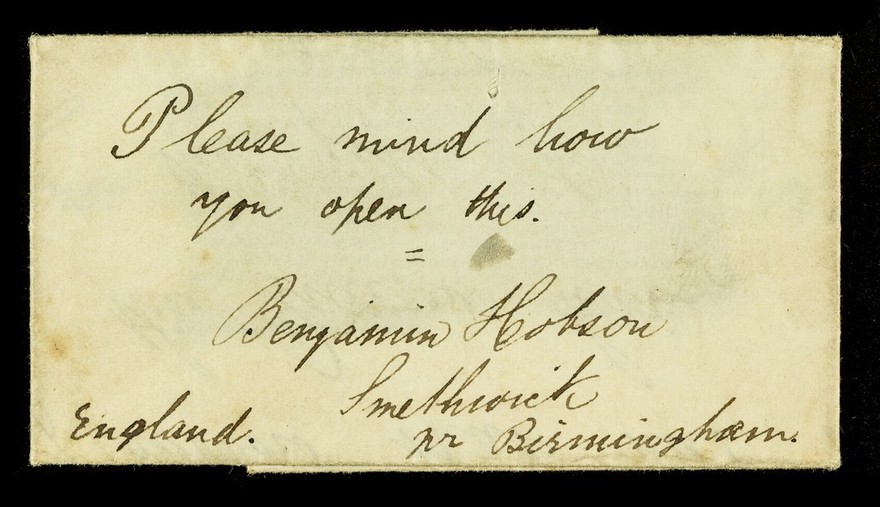 Please mind how
you open this.
=
Benjamin Hobson
Smethwick
England. nr Birmingham.